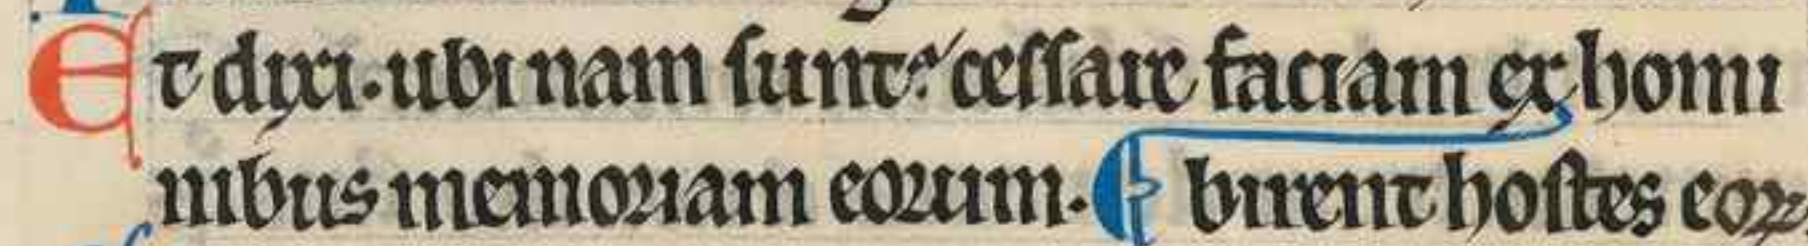 Et dixi. ubi nam sunt? cessare faciam ex homi
nibus memoriam eorum. ¶ birent hostes eoꝝ